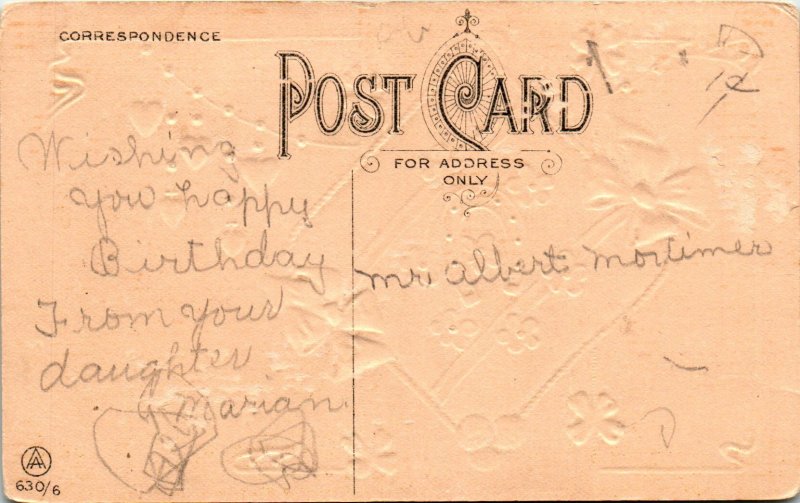 CORRESPONDENCE
POST CARD
FOR ADDRESS
ONLY
Wishing
you happy
Birthday
From your
daughter
Marian
Mr. Albert Mortimer
630/6